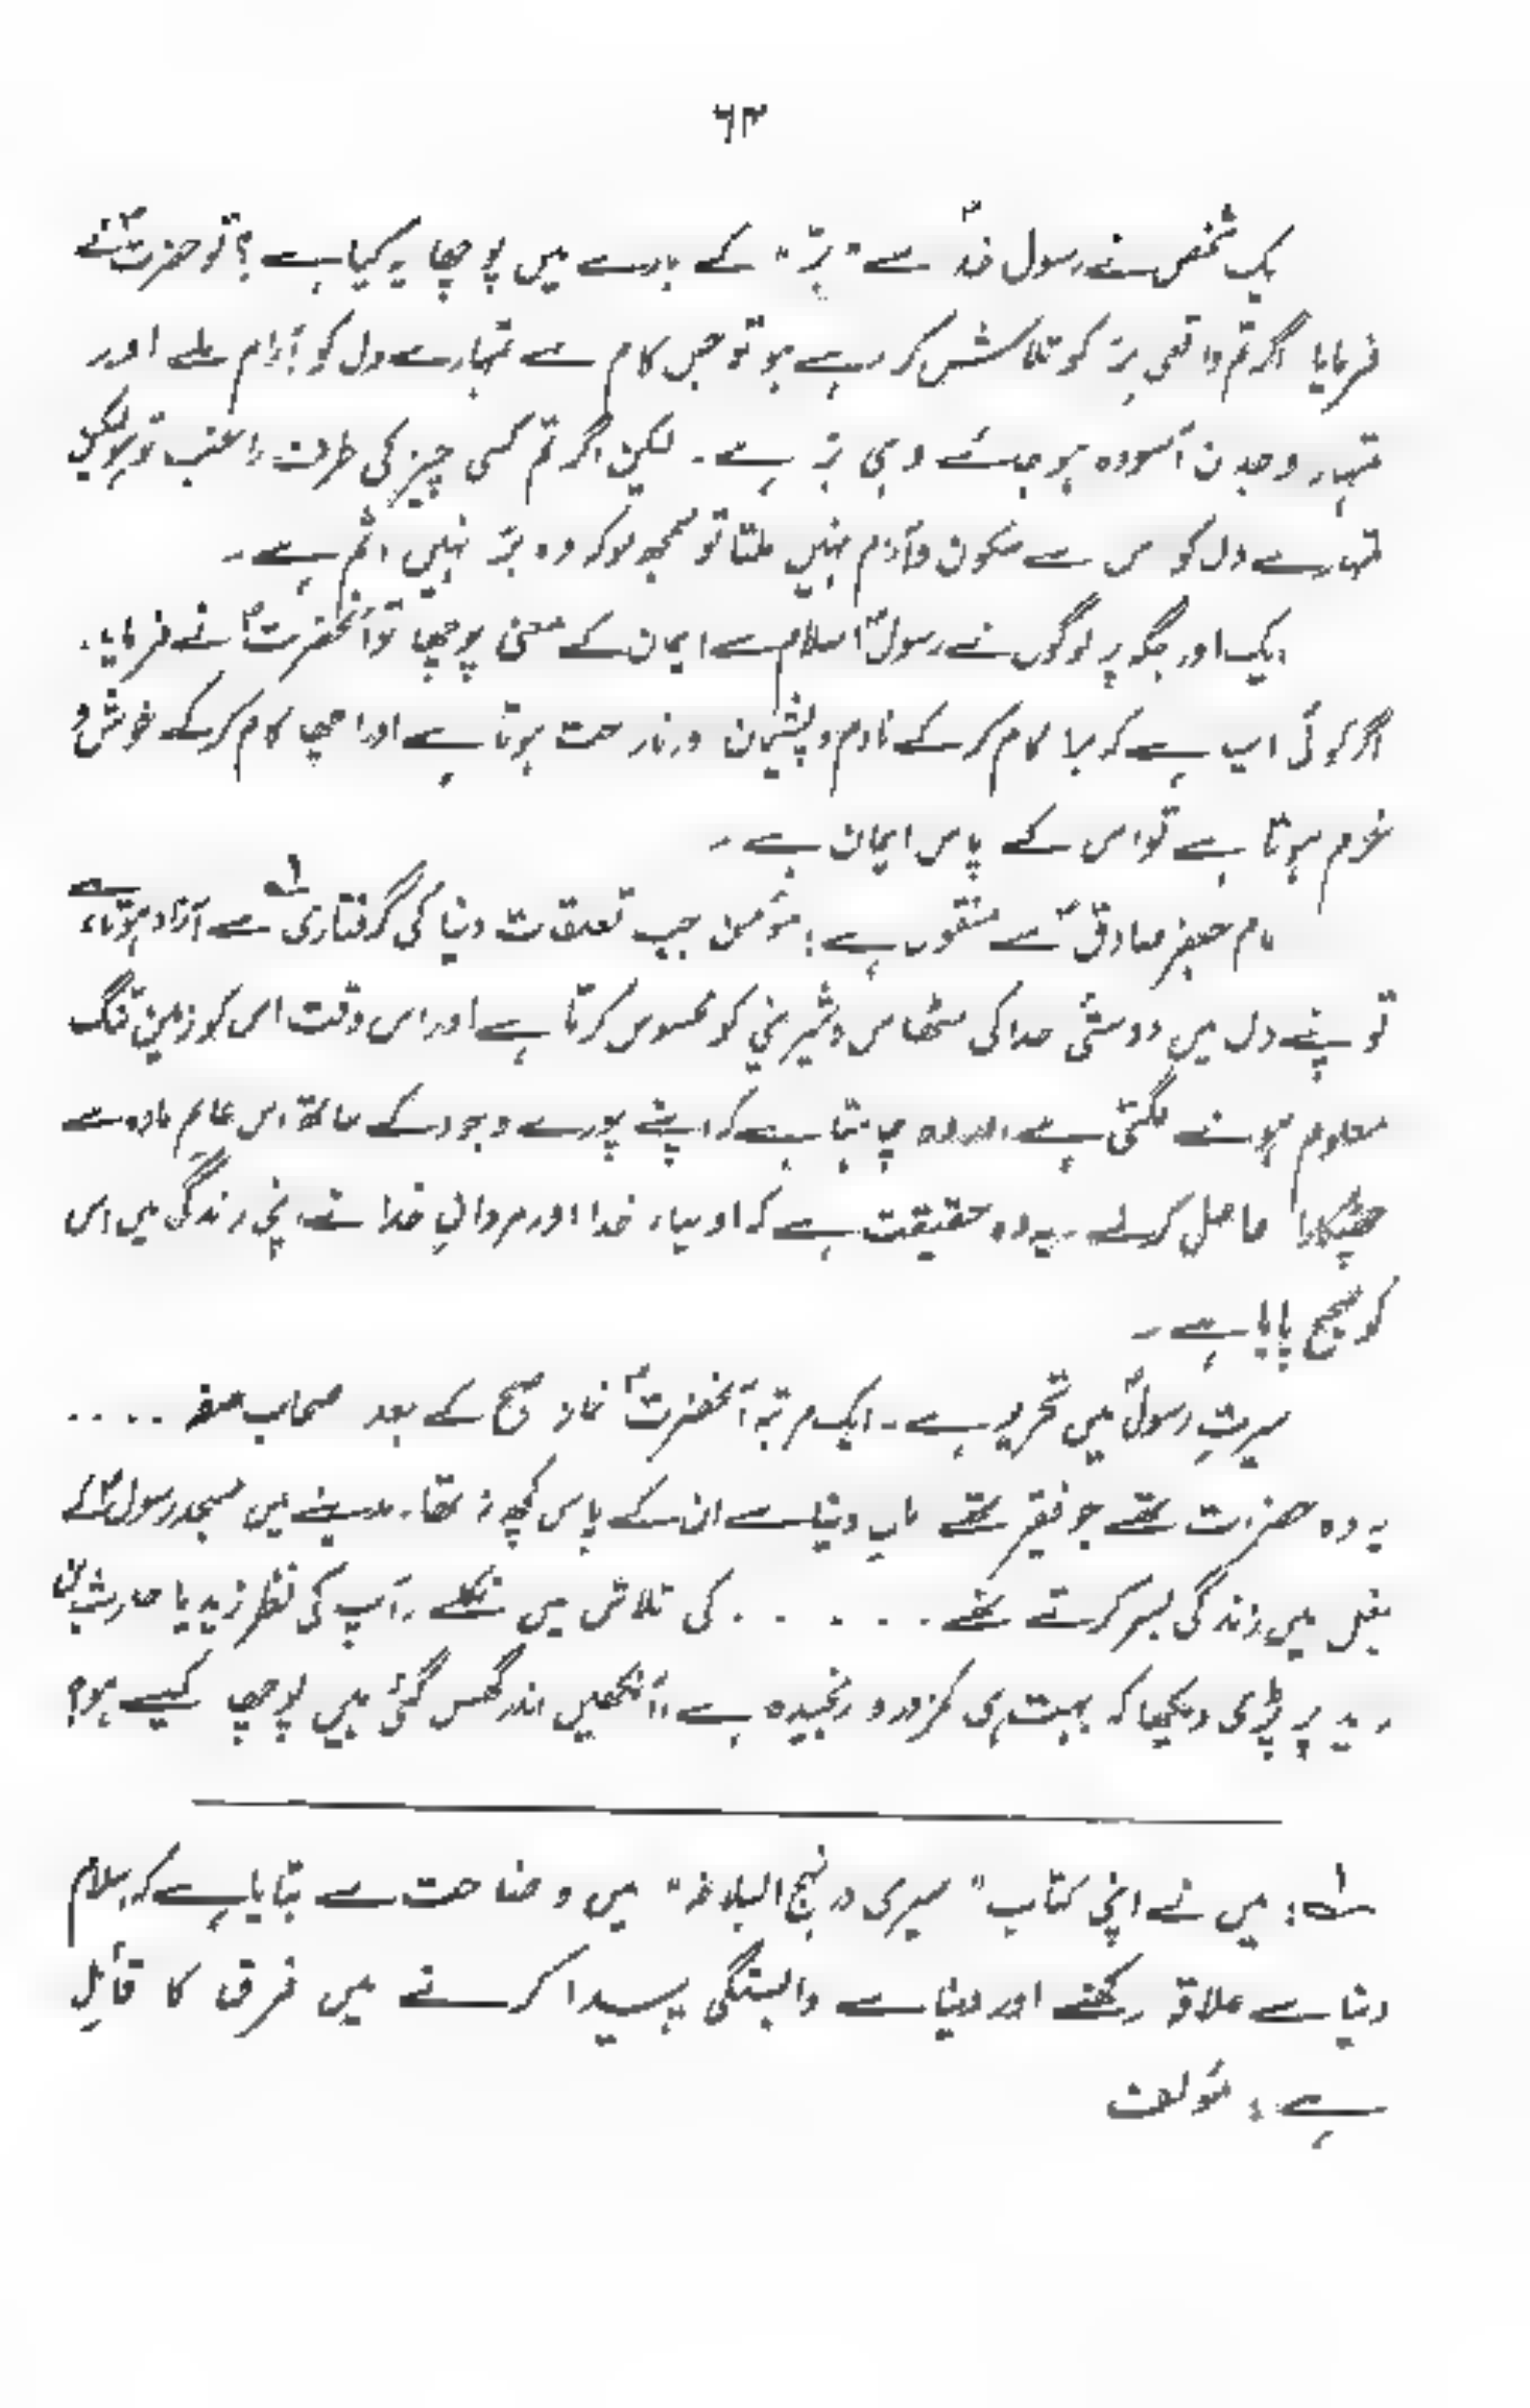 ۶۳
یک شخص نے رسول خداؐ سے "برّ" کے بارے میں پوچھا یہ کیا ہے ؟ تو حضرتؐ نے
فرمایا اگر تم واقعی برّ کو تلاش کر رہے ہو تو جس کام سے تمہارے دل کو آرام ملے اور
تمہارا وجدان آسودہ ہو جائے وہی برّ ہے۔ لیکن اگر تم کسی چیز کی طرف راغب تو ہو لیکن
تمہارے دل کو اس سے سکون و آرام نہیں ملتا تو سمجھ لو کہ وہ برّ نہیں اثم ہے۔
ایک اور جگہ پر لوگوں نے رسولؐ اسلام سے ایمان کے معنی پوچھا تو آنحضرتؐ نے فرمایا۔
اگر کوئی ایسا ہے کہ برا کام کر کے نادم و پشیمان اور ناراحت ہوتا ہے اور اچھا کام کر کے خوش و
خرم ہوتا ہے تو اس کے پاس ایمان ہے۔
امام جعفر صادقؑ سے منقول ہے: مؤمن جب تعلقات دنیا کی گرفتاری ؎۱ سے آزاد ہوتا ہے
تو اپنے دل میں دوستی خدا کی مٹھاس و شیرینی کو محسوس کرتا ہے اور اس وقت اس کو زمین تنگ
معلوم ہونے لگتی ہے اور وہ چاہتا ہے کہ اپنے پورے وجود کے ساتھ اس عالمِ مادہ سے
چھٹکارا حاصل کرلے۔ یہ وہ حقیقت ہے کہ اولیاء خدا اور مردانِ خدا نے اپنی زندگی میں اس
کو صحیح پایا ہے۔
سیرتِ رسولؐ میں تحریر ہے۔ ایک مرتبہ آنحضرتؐ نماز صبح کے بعد اصحاب صفہ ....
یہ وہ حضرات تھے جو فقیر تھے مالِ دنیا سے ان کے پاس کچھ نہ تھا۔ مدینے میں مسجد رسولؐ کے
بغل میں زندگی بسر کرتے تھے ...... کی تلاش میں نکلے۔ آپ کی نظر زید یا حارث بن
زید پر پڑی دیکھا کہ بہت ہی کمزور و رنجیدہ ہے، آنکھیں اندر گھس گئی ہیں پوچھا کیسے ہو؟
؎۱: میں نے اپنی کتاب "سیری در نہج البلاغہ" میں وضاحت سے بتایا ہے کہ اسلام
دنیا سے علاقہ رکھنے اور دنیا سے وابستگی پیدا کرنے میں فرق کا قائل
ہے: مؤلف